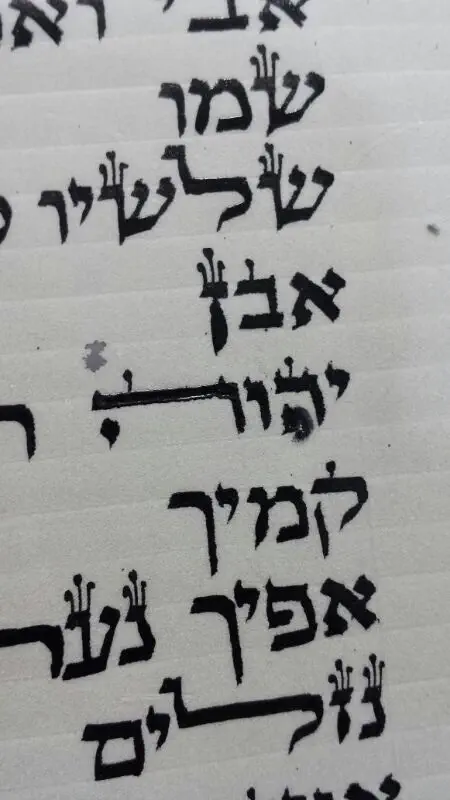 אבי
שמו
שלשיו
אבן
יהוה
קמיך
אפיך נער
נזלים